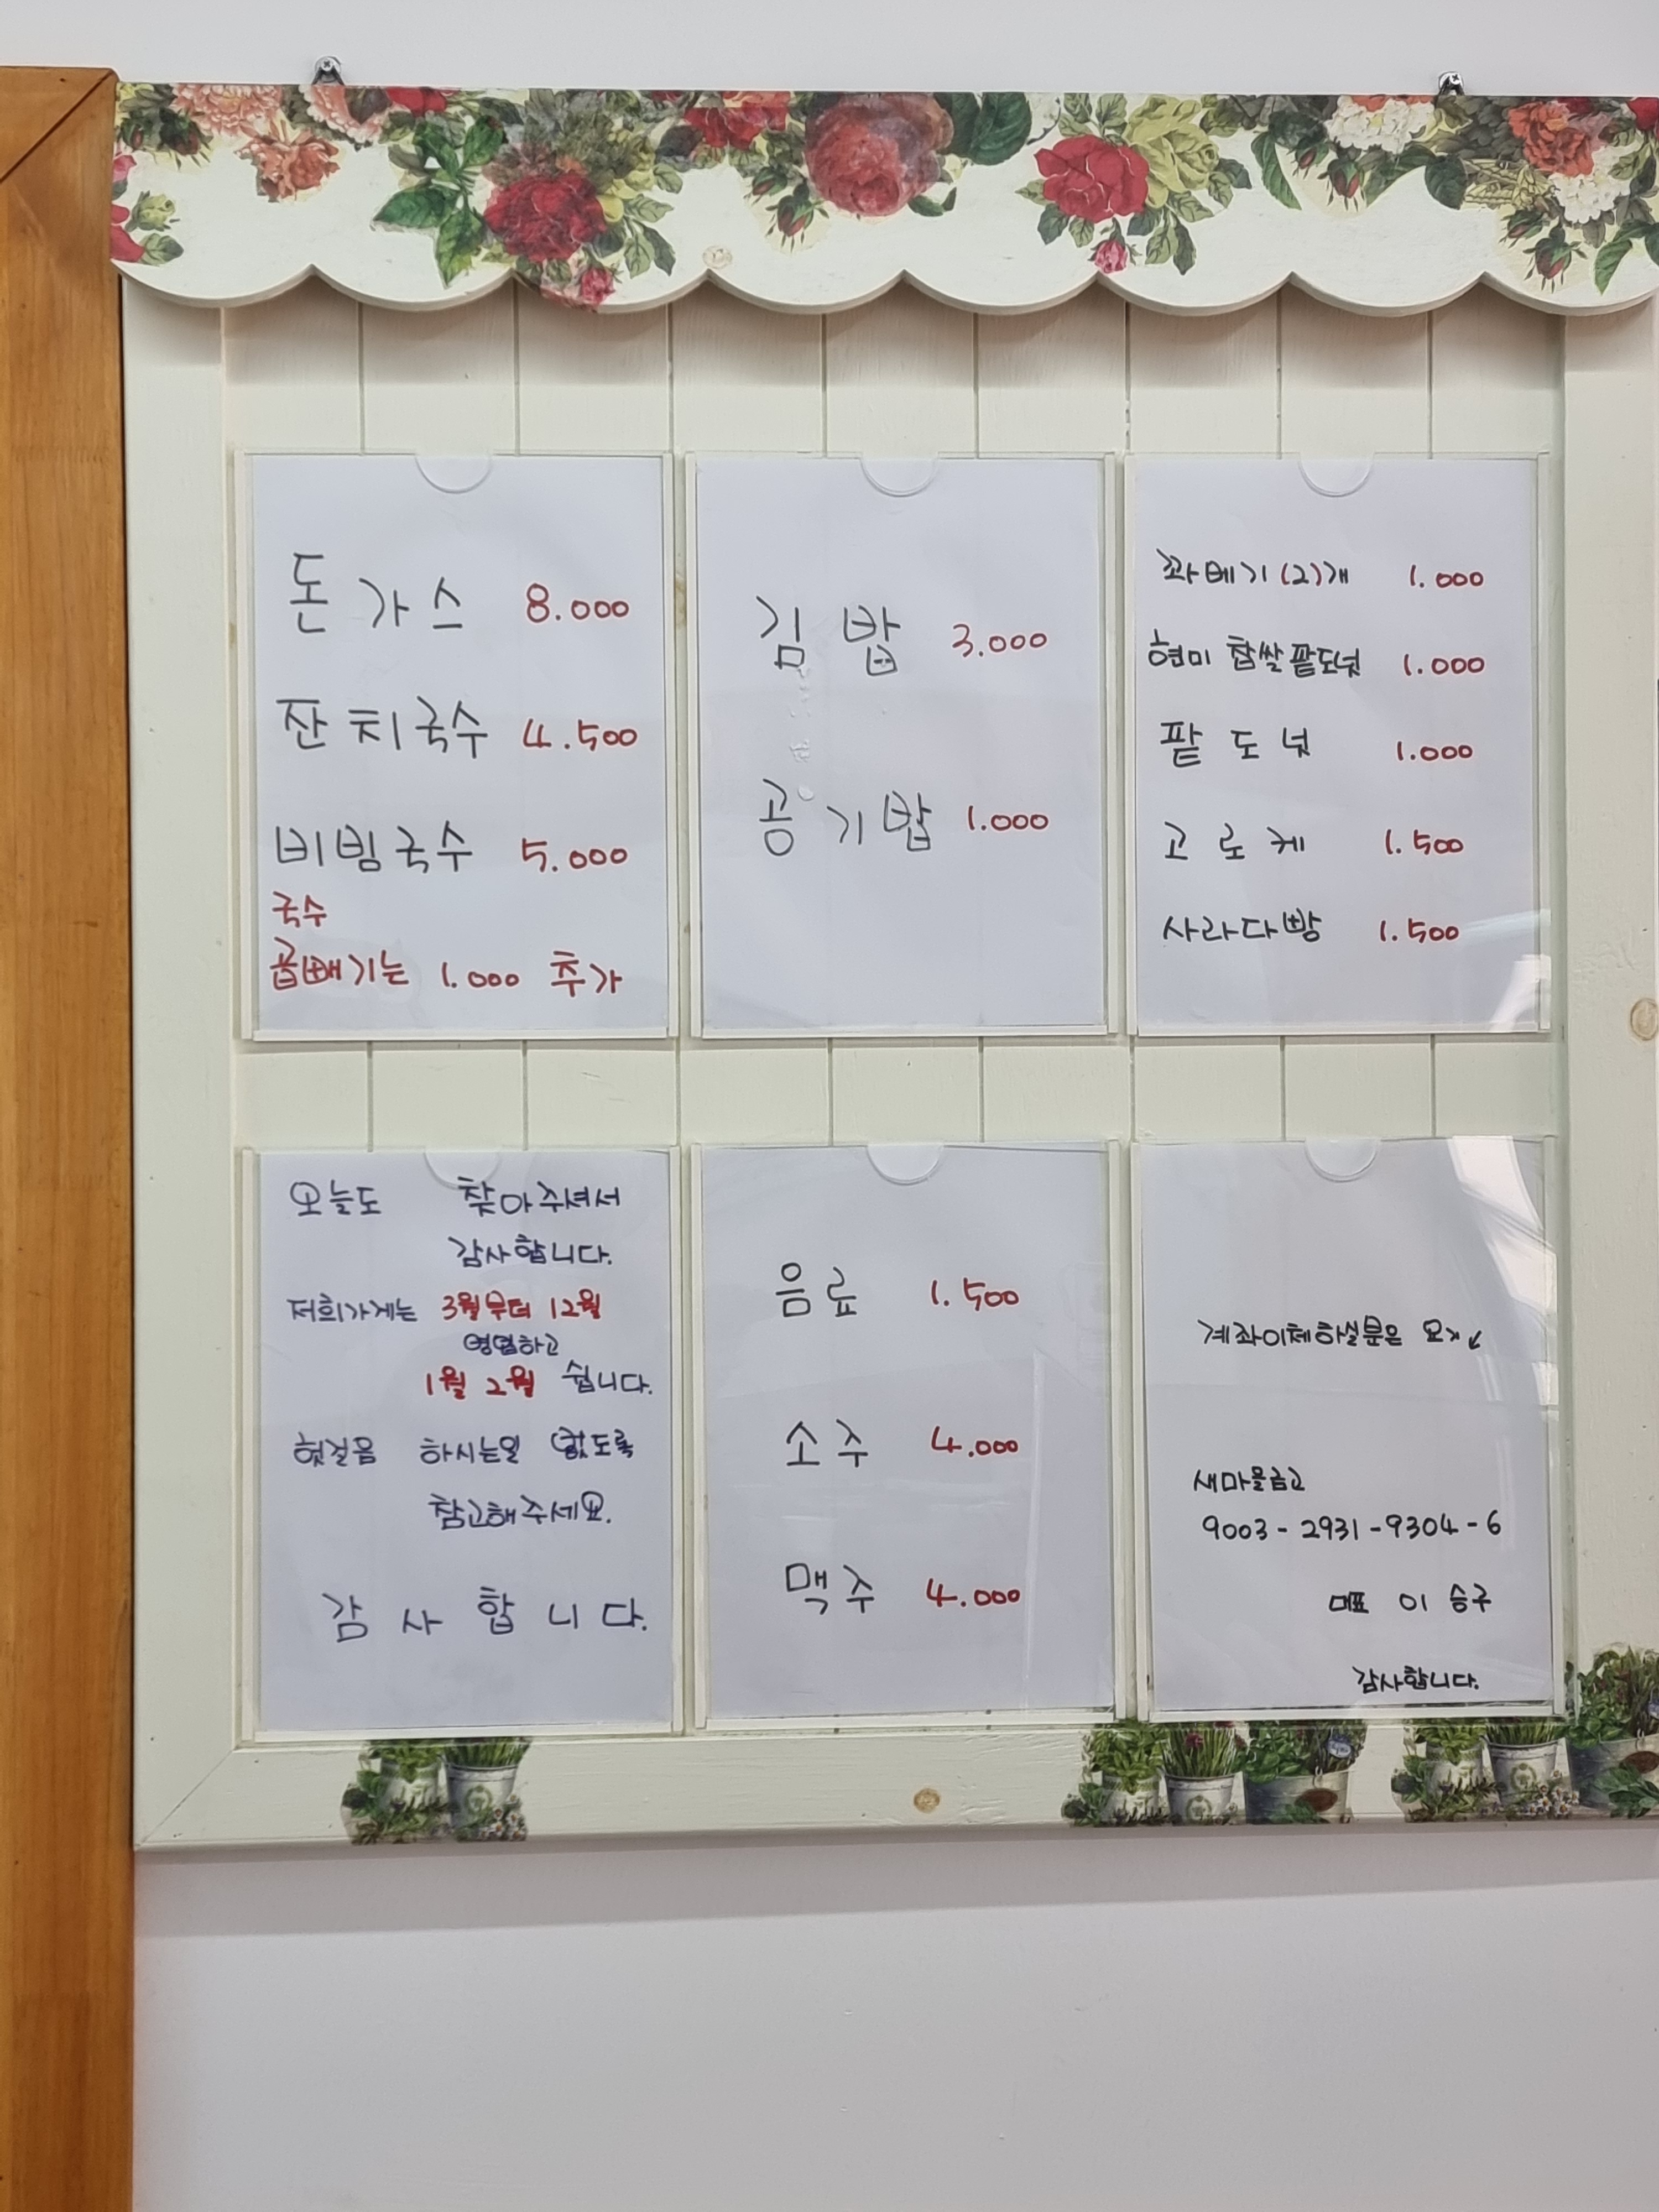 돈가스 8.000
잔치국수 4.500
비빔국수 5.000
국수
곱빼기는 1.000 추가
김밥 3.000
공기밥 1.000
꽈베기(2)개 1.000
현미 찹쌀팥도넛 1.000
팥도넛 1.000
고로케 1.500
사라다빵 1.500
오늘도 찾아주셔서
감사합니다.
저희가게는 3월부터 12월
영업하고
1월 2월 쉽니다.
헛걸음 하시는일 없도록
참고해주세요.
감사합니다.
음료 1.500
소주 4.000
맥주 4.000
계좌이체하실분은
새마을금고
9003-2931-9304-6
대표 이승구
감사합니다.